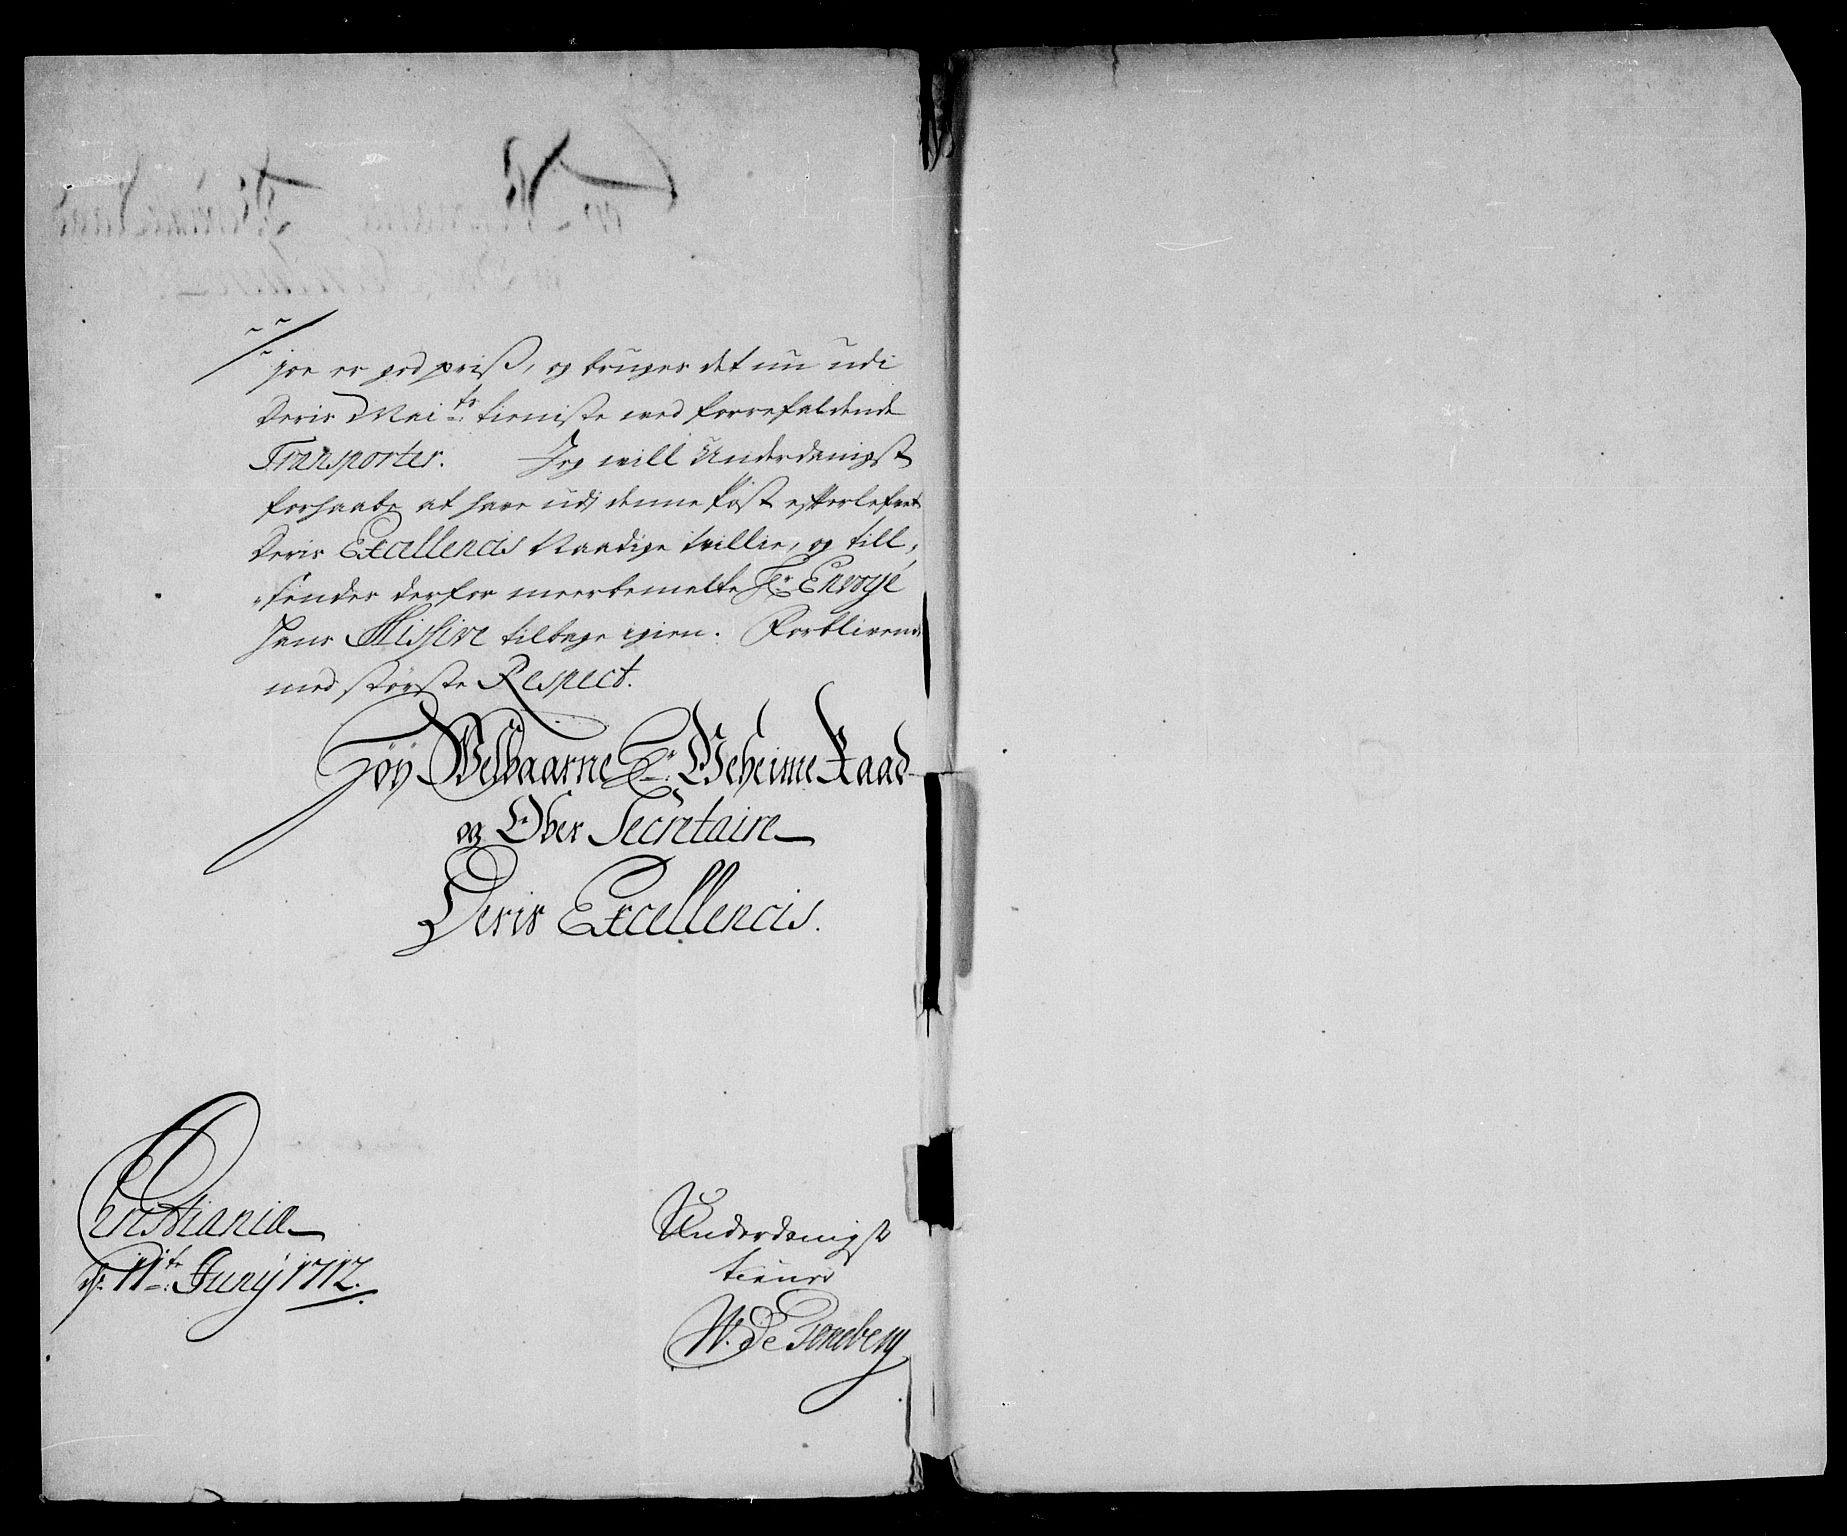 joe er god priß, og bruges det nu udi
Deris Mai:ts tieniste med forrefaldende
Transporter. Jeg will Underdanigst
forhaabe at have udi denne Post efterlefvet
Deris Excellencis Naadige villie, og till-
-sender derfor meerbemelte Hr: Envoyé
hans Missive tilbage igien. Forblivende
med störste Respect.
Höy Welbaarne Hr: Geheime Raad
og Ober Secretaire
Deris Excellencis.
Christiania
d. 11te Juny 1712.
Underdanigst
tiener
W. de Tonsberg